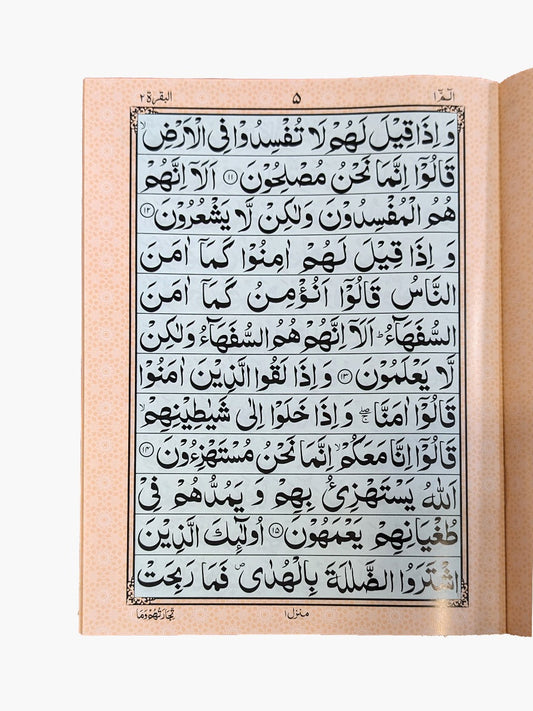 الٓمّٓ ١ ۵ البقرة ٢
وَ اِذَا قِيْلَ لَهُمْ لَا تُفْسِدُوْا فِى الْاَرْضِ ۙ
قَالُوْٓا اِنَّمَا نَحْنُ مُصْلِحُوْنَ ۝۱۱ اَلَآ اِنَّهُمْ
هُمُ الْمُفْسِدُوْنَ وَلٰكِنْ لَّا يَشْعُرُوْنَ ۝۱۲
وَ اِذَا قِيْلَ لَهُمْ اٰمِنُوْا كَمَآ اٰمَنَ
النَّاسُ قَالُوْٓا اَنُؤْمِنُ كَمَآ اٰمَنَ
السُّفَهَآءُ ؕ اَلَآ اِنَّهُمْ هُمُ السُّفَهَآءُ وَلٰكِنْ
لَّا يَعْلَمُوْنَ ۝۱۳ وَ اِذَا لَقُوا الَّذِيْنَ اٰمَنُوْا
قَالُوْٓا اٰمَنَّا ۖۚ وَ اِذَا خَلَوْا اِلٰى شَيٰطِيْنِهِمْ ۙ
قَالُوْٓا اِنَّا مَعَكُمْ ۙ اِنَّمَا نَحْنُ مُسْتَهْزِءُوْنَ ۝۱۴
اَللّٰهُ يَسْتَهْزِئُ بِهِمْ وَ يَمُدُّهُمْ فِىْ
طُغْيَانِهِمْ يَعْمَهُوْنَ ۝۱۵ اُولٰٓئِكَ الَّذِيْنَ
اشْتَرَوُا الضَّلٰلَةَ بِالْهُدٰى ۪ فَمَا رَبِحَتْ
منزل ١ تِّجَارَتُهُمْ وَمَا